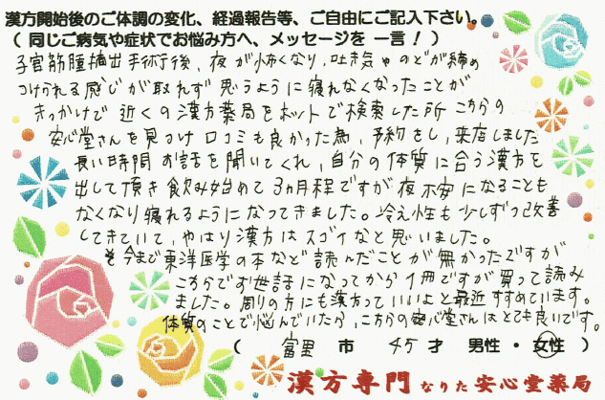 漢方開始後のご体調の変化、経過報告等、ご自由にご記入下さい。
（ 同じご病気や症状でお悩み方へ、メッセージを 一言！ ）
子宮筋腫摘出手術後、夜が怖くなり、吐き気やのどが締め
つけられる感じが取れず 思うように寝れなくなったことが
きっかけで 近くの漢方薬局をネットで検索した所 こちらの
安心堂さんを見つけ 口コミも良かった為、予約をし、来店しました
長い時間お話を聞いてくれ、自分の体質に合う漢方を
出して頂き飲み始めて3ヵ月程ですが夜不安になることも
なくなり寝れるようになってきました。冷え性も少しずつ改善
してきていて、やはり漢方はスゴイなと思いました。
今まで東洋医学の本など読んだことが無かったですが
こちらでお世話になってから1冊ですが買って読み
ました。周りの方にも漢方っていいよと最近すすめています。
体質のことで悩んでいたら、こちらの安心堂さんはとても良いです。
（ 富里 市 45 才 男性・女性 ）
漢方専門 なりた 安心堂薬局